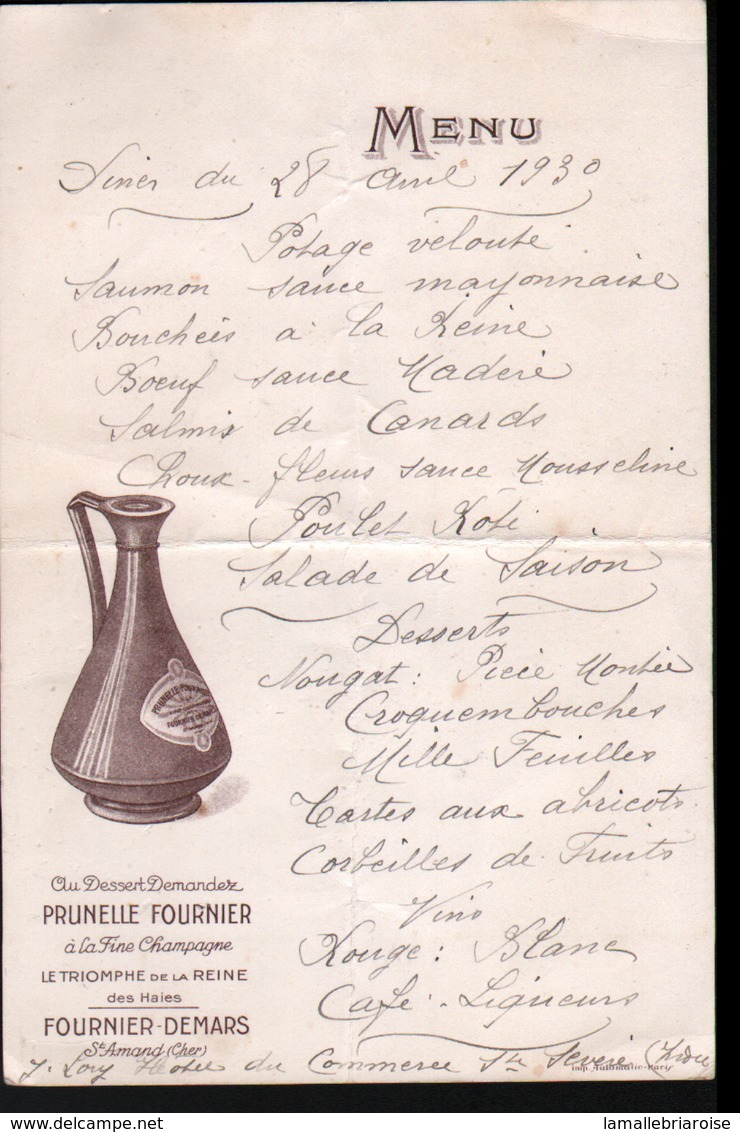 MENU
Diner du 28 avril 1930
Potage velouté
Saumon sauce mayonnaise
Bouchées à la Reine
Boeuf sauce Madère
Salmis de Canards
Choux-fleurs sauce Mousseline
Poulet Rôti
Salade de Saison
Desserts
Nougat : Pièce Montée
Croquembouches
Mille Feuilles
Tartes aux abricots
Corbeilles de Fruits
Vins
Rouge : Blanc
Café - Liqueurs
PRUNELLE FOURNIER
FOURNIER-DEMARS
Au Dessert Demandez
PRUNELLE FOURNIER
à la Fine Champagne
LE TRIOMPHE DE LA REINE
des Haies
FOURNIER-DEMARS
St Amand (Cher)
Hotel du Commerce Ste Sévère (Indre)
Imp. Automatic-Paris
lamallebriaroise
delcampe.net